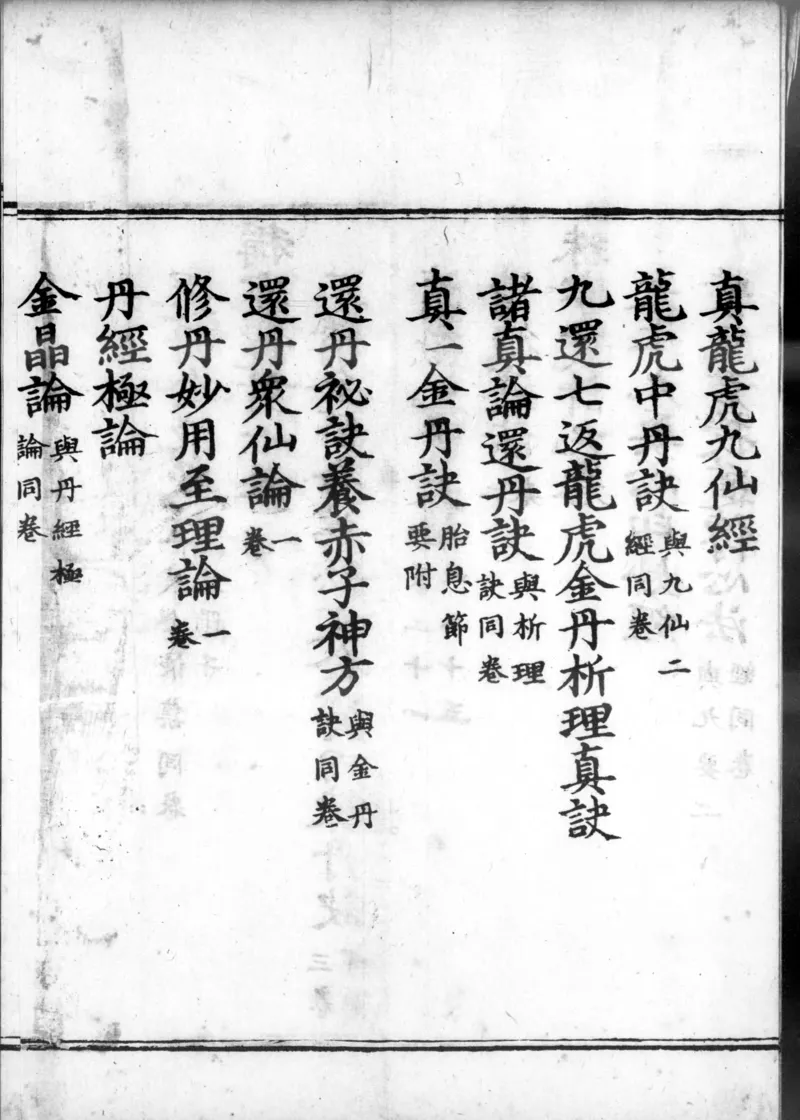 真龍虎九仙經
龍虎中丹訣 與九仙二經同卷
九還七返龍虎金丹析理真訣
諸真論還丹訣 與析理訣同卷
真一金丹訣 胎息節要附
還丹祕訣養赤子神方 與金丹訣同卷
還丹衆仙論 一卷
修丹妙用至理論 一卷
丹經極論
金晶論 與丹經極論同卷